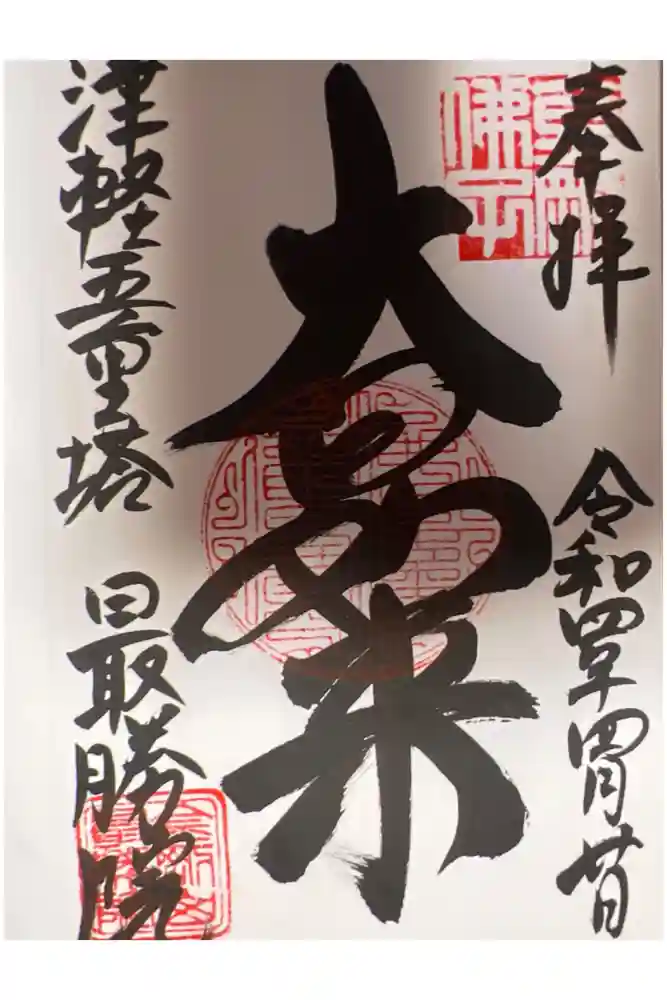 奉拝
令和四年四月廿日
大日如来
津軽五重塔 最勝院
佛子